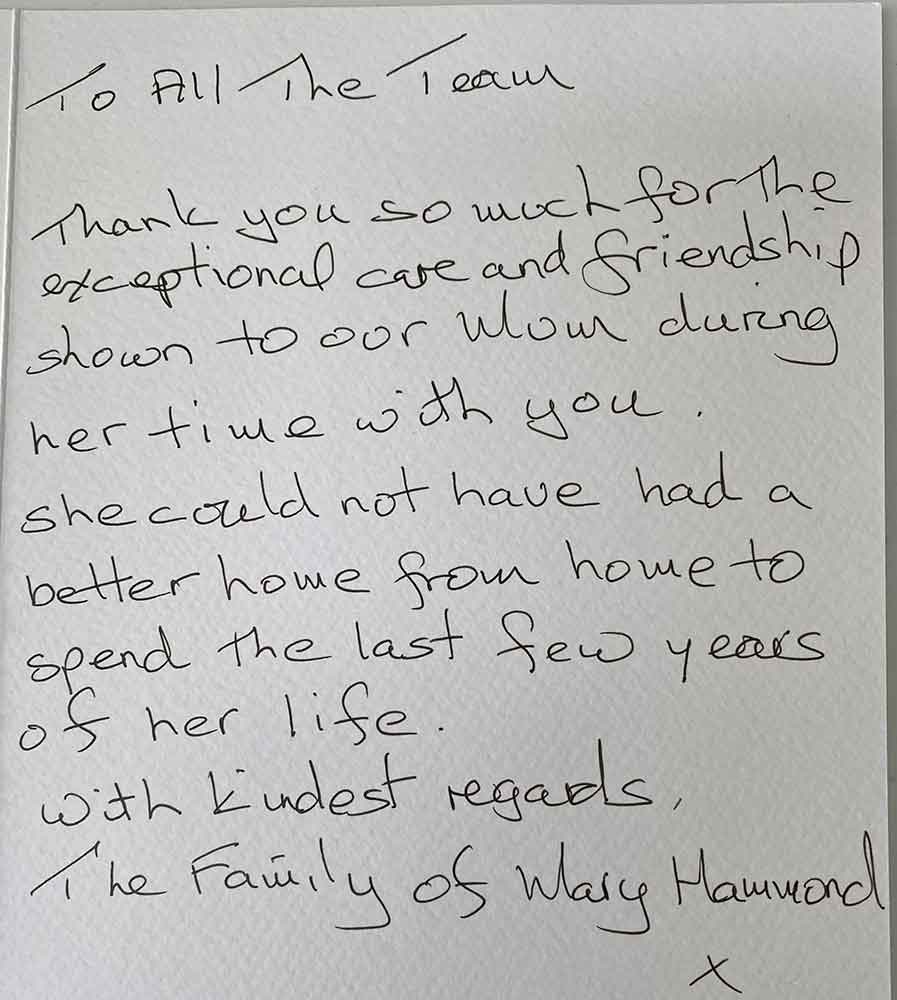 To All The Team
Thank you so much for the
exceptional care and friendship
shown to our Mom during
her time with you.
she could not have had a
better home from home to
spend the last few years
of her life.
with kindest regards,
The Family of Mary Hammond
x